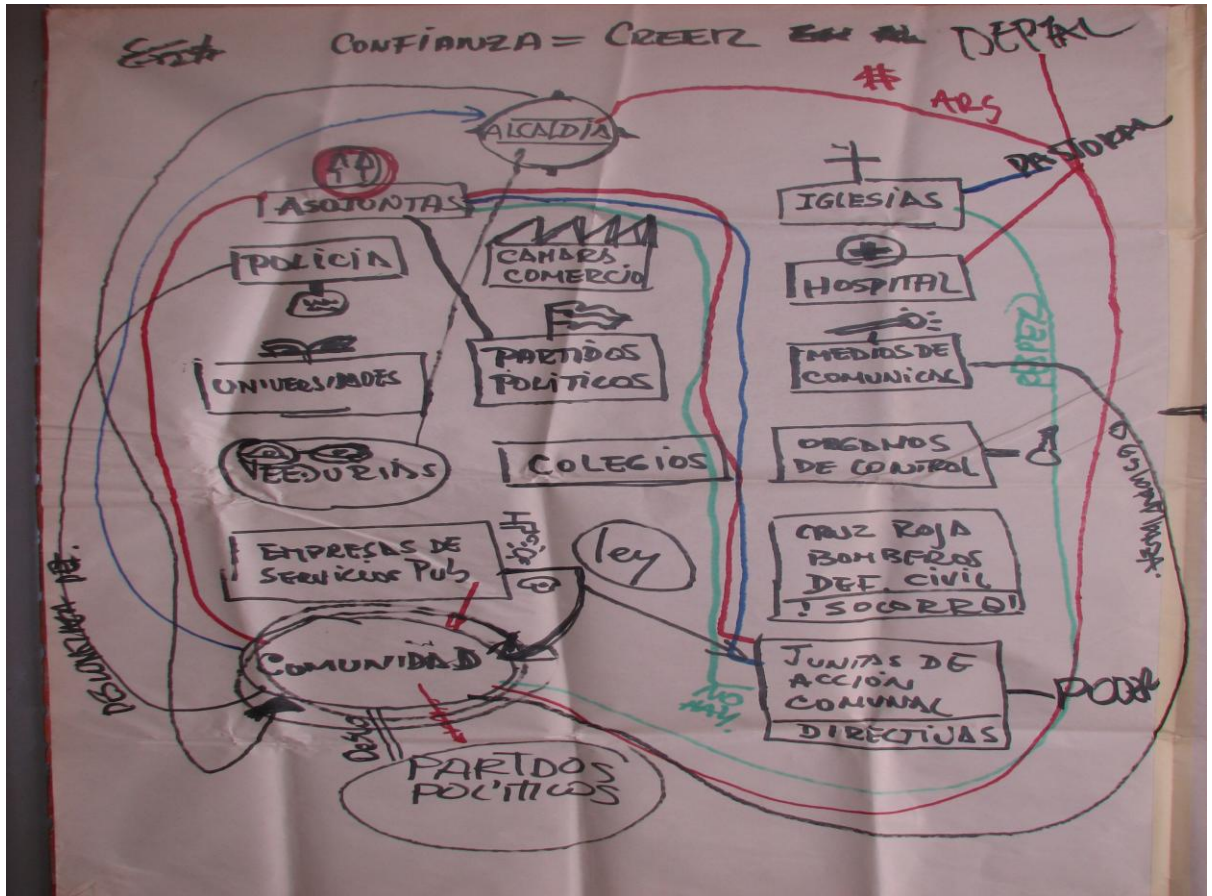 CONFIANZA = CREER
DEPTAL
# ARS
ALCALDÍA
PASTORAL
ASOJUNTAS
IGLESIAS
POLICÍA
CAMARA
COMERCIO
HOSPITAL
UNIVERSIDADES
PARTIDOS
POLÍTICOS
MEDIOS DE
COMUNICAS
VEEDURIAS
COLEGIOS
ORGANOS
DE CONTROL
DESCONFIANZA.
EMPRESAS DE
SERVICIOS PUB
ley
CRUZ ROJA
BOMBEROS
DEF. CIVIL
! SOCORRO!
COMUNIDAD
JUNTAS DE
ACCIÓN
COMUNAL
DIRECTIVAS
PODER
NO
HAY.
PARTIDOS
POLITICOS